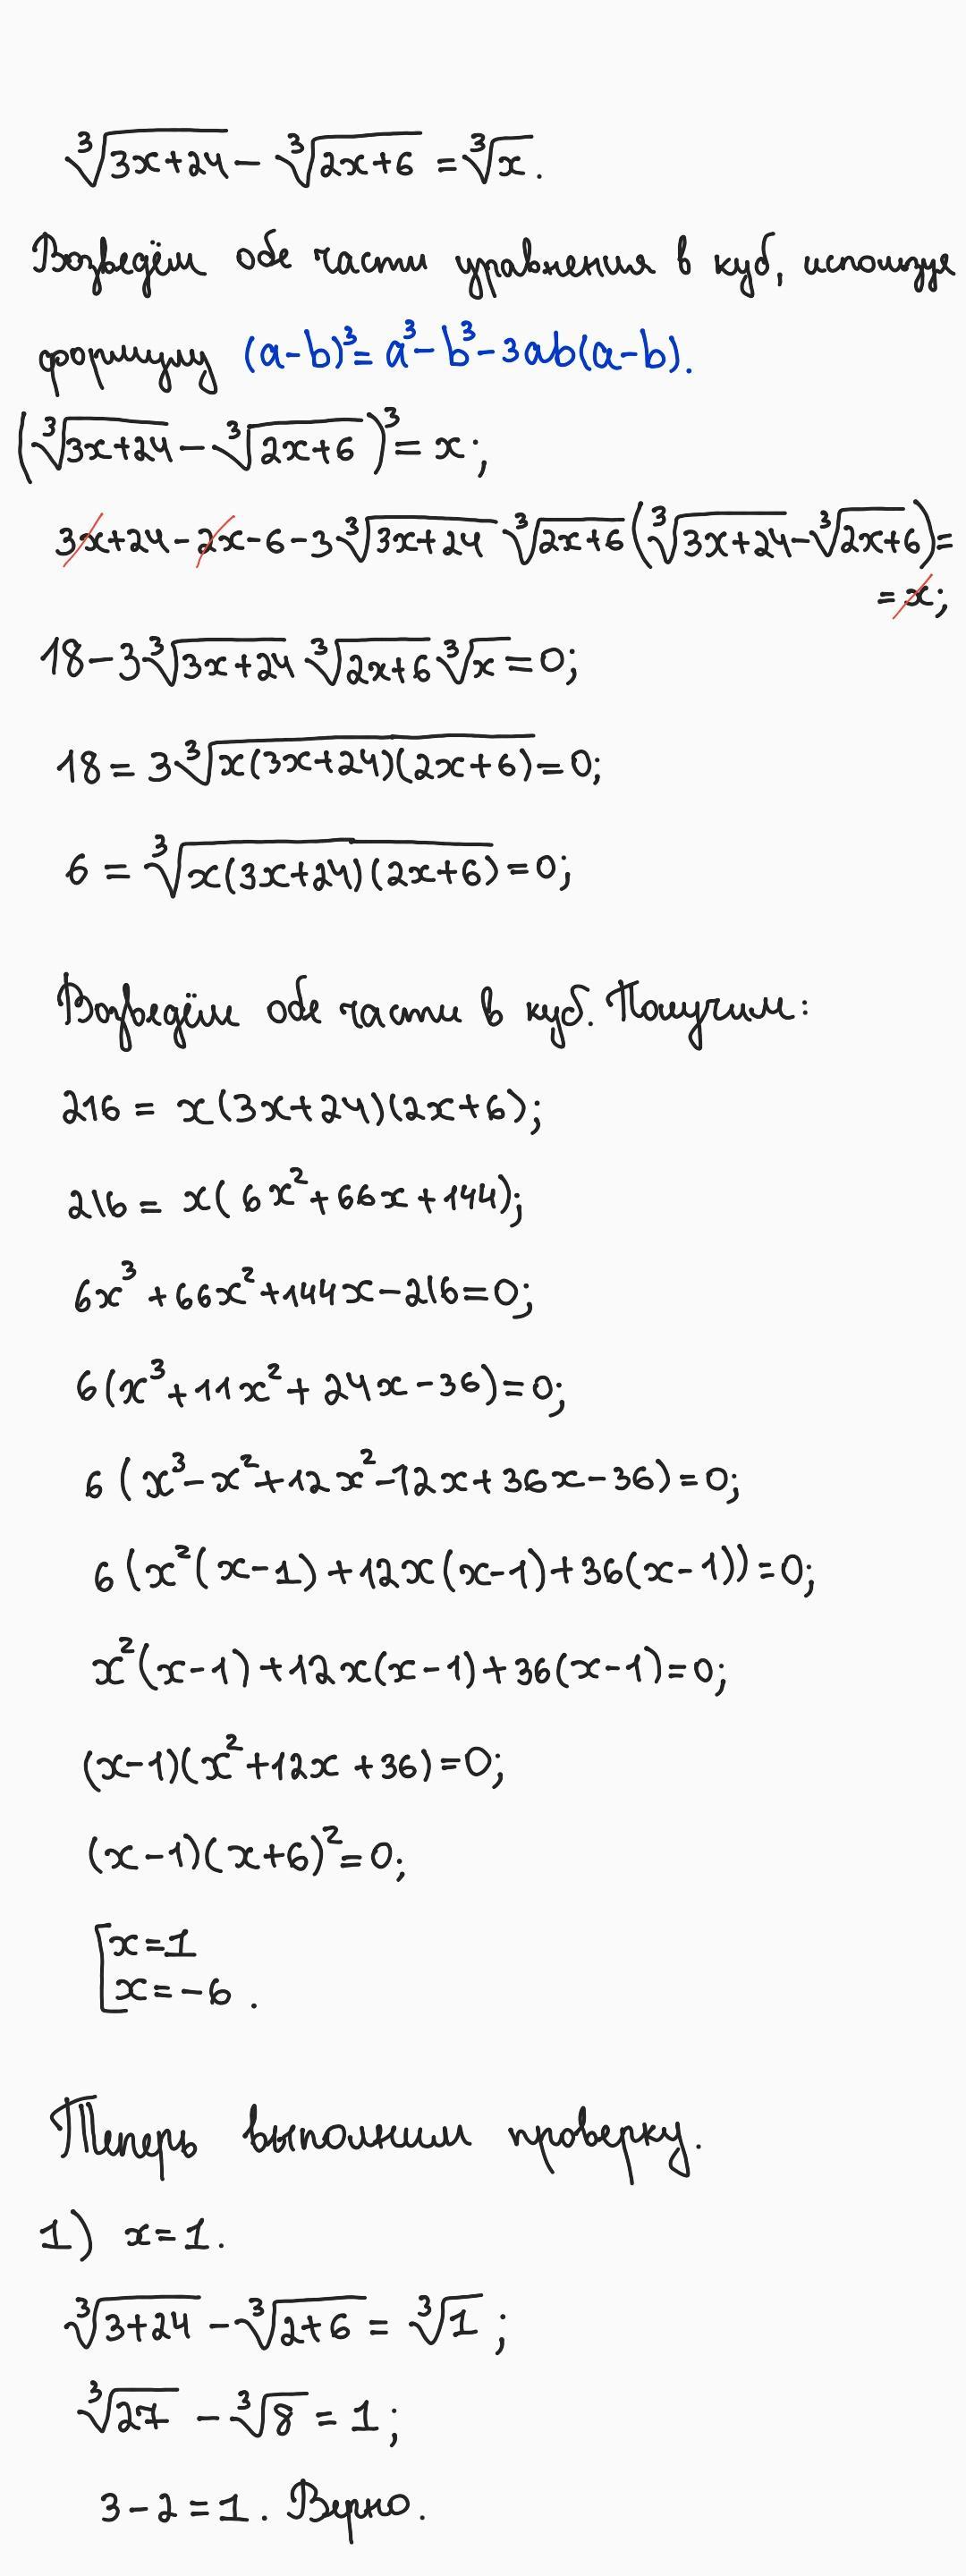 ∛(3x+24) - ∛(2x+6) = ∛x.
Возведём обе части уравнения в куб, используя
формулу (a-b)³= a³- b³- 3ab(a-b).
(∛(3x+24) - ∛(2x+6))³= x;
3x+24-2x-6-3∛(3x+24) ∛(2x+6) (∛(3x+24)-∛(2x+6))=
= x;
18-3∛(3x+24) ∛(2x+6) ∛x=0;
18 = 3∛(x(3x+24)(2x+6))=0;
6 = ∛(x(3x+24)(2x+6))=0;
Возведём обе части в куб. Получим:
216 = x(3x+24)(2x+6);
216 = x(6x²+66x+144);
6x³+66x²+144x-216=0;
6(x³+11x²+24x-36)=0;
6(x³-x²+12x²-12x+36x-36)=0;
6(x²(x-1)+12x(x-1)+36(x-1))=0;
x²(x-1)+12x(x-1)+36(x-1)=0;
(x-1)(x²+12x+36)=0;
(x-1)(x+6)²=0;
[x=1
x=-6.
Теперь выполним проверку.
1) x=1.
∛(3+24) - ∛(2+6) = ∛1;
∛27 - ∛8 = 1;
3-2=1. Верно.